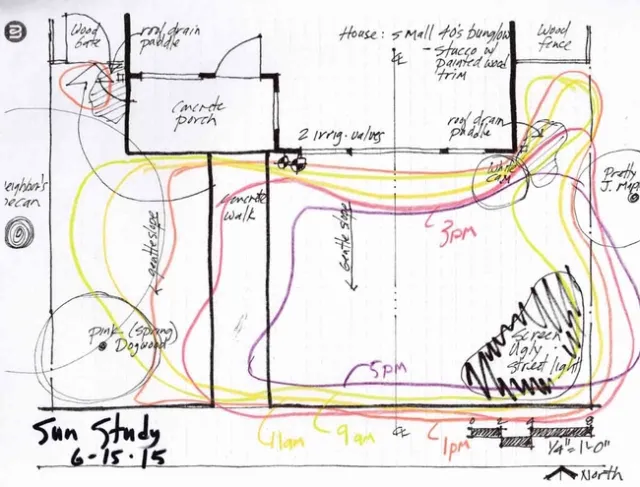 2
Wood
Gate
roof drain
paddle
House: small 40's bunglow
- stucco w
painted wood
trim
Wood
fence
concrete
porch
2 irrig. valves
roof drain
paddle
white
Pretty
J. Map
neighbor's
pecan
concrete
walk
gentle slope
Gentle slope
3pm
pink (spring)
Dogwood
Screen
Ugly
street light
5pm
Sun Study
6-15-15
11am
9am
1pm
0 2 4 8
1/4" = 1'-0"
North